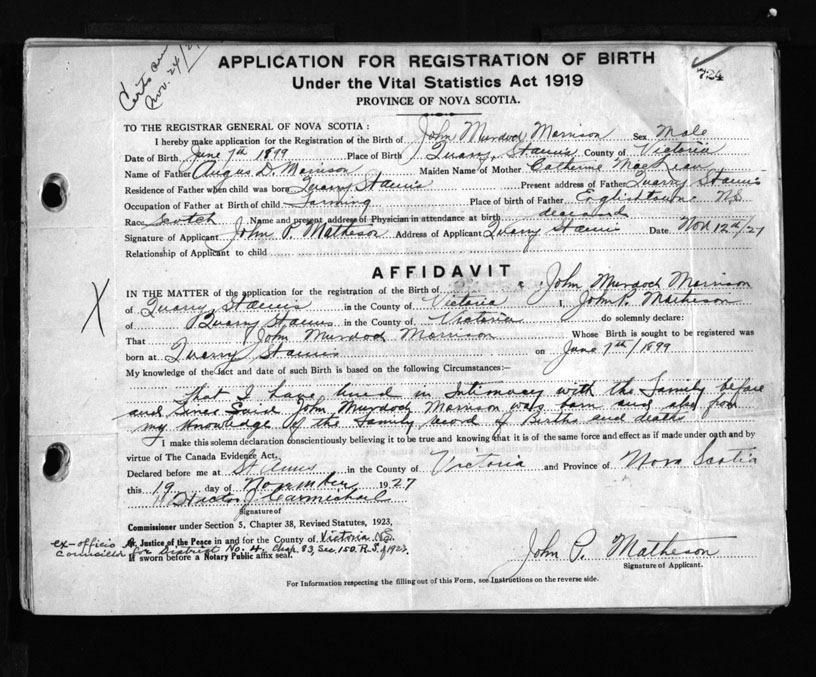 Certs
Nov. 24/2
APPLICATION FOR REGISTRATION OF BIRTH
724
Under the Vital Statistics Act 1919
PROVINCE OF NOVA SCOTIA.
TO THE REGISTRAR GENERAL OF NOVA SCOTIA :
I hereby make application for the Registration of the Birth of John Murdoch Morrison Sex Male
Date of Birth June 7th 1899 Place of Birth Quarry, St Anns County of Victoria
Name of Father Angus D. Morrison Maiden Name of Mother Catherine MacLean
Residence of Father when child was born Quarry St Anns Present address of Father Quarry St Anns
Occupation of Father at Birth of child Farming Place of birth of Father Englishtown NS
Race Scotch Name and present address of Physician in attendance at birth deceased
Signature of Applicant John P. Matheson Address of Applicant Quarry St Anns Date Nov 12th/27
Relationship of Applicant to child
AFFIDAVIT
X
IN THE MATTER of the application for the registration of the Birth of John Murdoch Morrison
of Quarry St Anns in the County of Victoria I, John P. Matheson
of Quarry St Anns in the County of Victoria do solemnly declare:
That John Murdoch Morrison Whose Birth is sought to be registered was
born at Quarry St Anns on June 7th/1899
My knowledge of the fact and date of such Birth is based on the following Circumstances:—
That I have lived in Intimacy with the Family before
and since Said John Murdoch Morrison was born and also from
my knowledge of the Family record of Births and deaths
I make this solemn declaration conscientiously believing it to be true and knowing that it is of the same force and effect as if made under oath and by
virtue of The Canada Evidence Act.
Declared before me at St Anns in the County of Victoria and Province of Nova Scotia
this 19 day of November 1927
Hector J Carmichael
Signature of
Commissioner under Section 5, Chapter 38, Revised Statutes, 1923,
ex-officio A Justice of the Peace in and for the County of Victoria N.S.
Councillor for District No. 4, Chap. 83, Sec. 150. R.S. of 1923.
If sworn before a Notary Public affix seal.
John P. Matheson
Signature of Applicant.
For Information respecting the filling out of this Form, see Instructions on the reverse side.